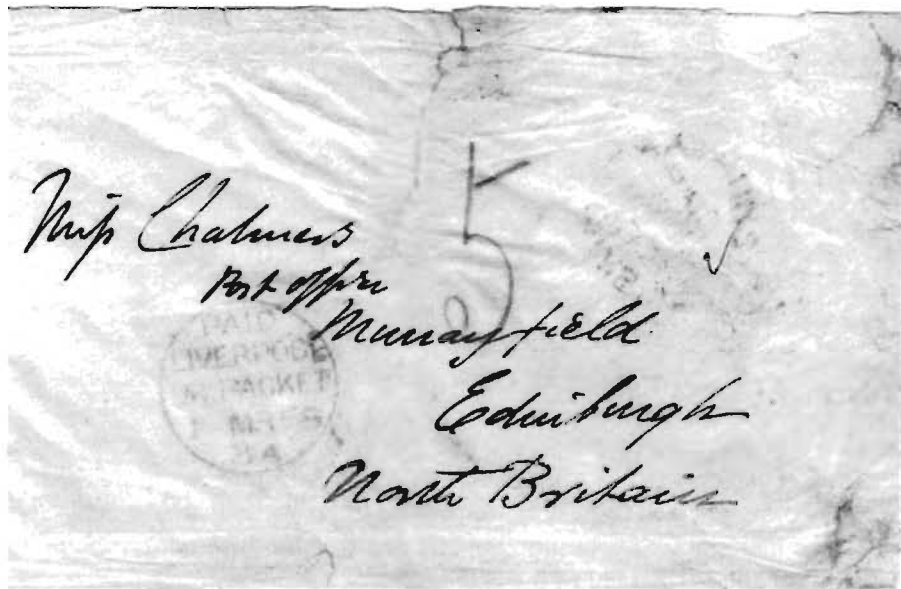 5
Miss Chalmers
Post office
Murrayfield
Edinburgh
North Britain
PAID
LIVERPOOL
PACKET